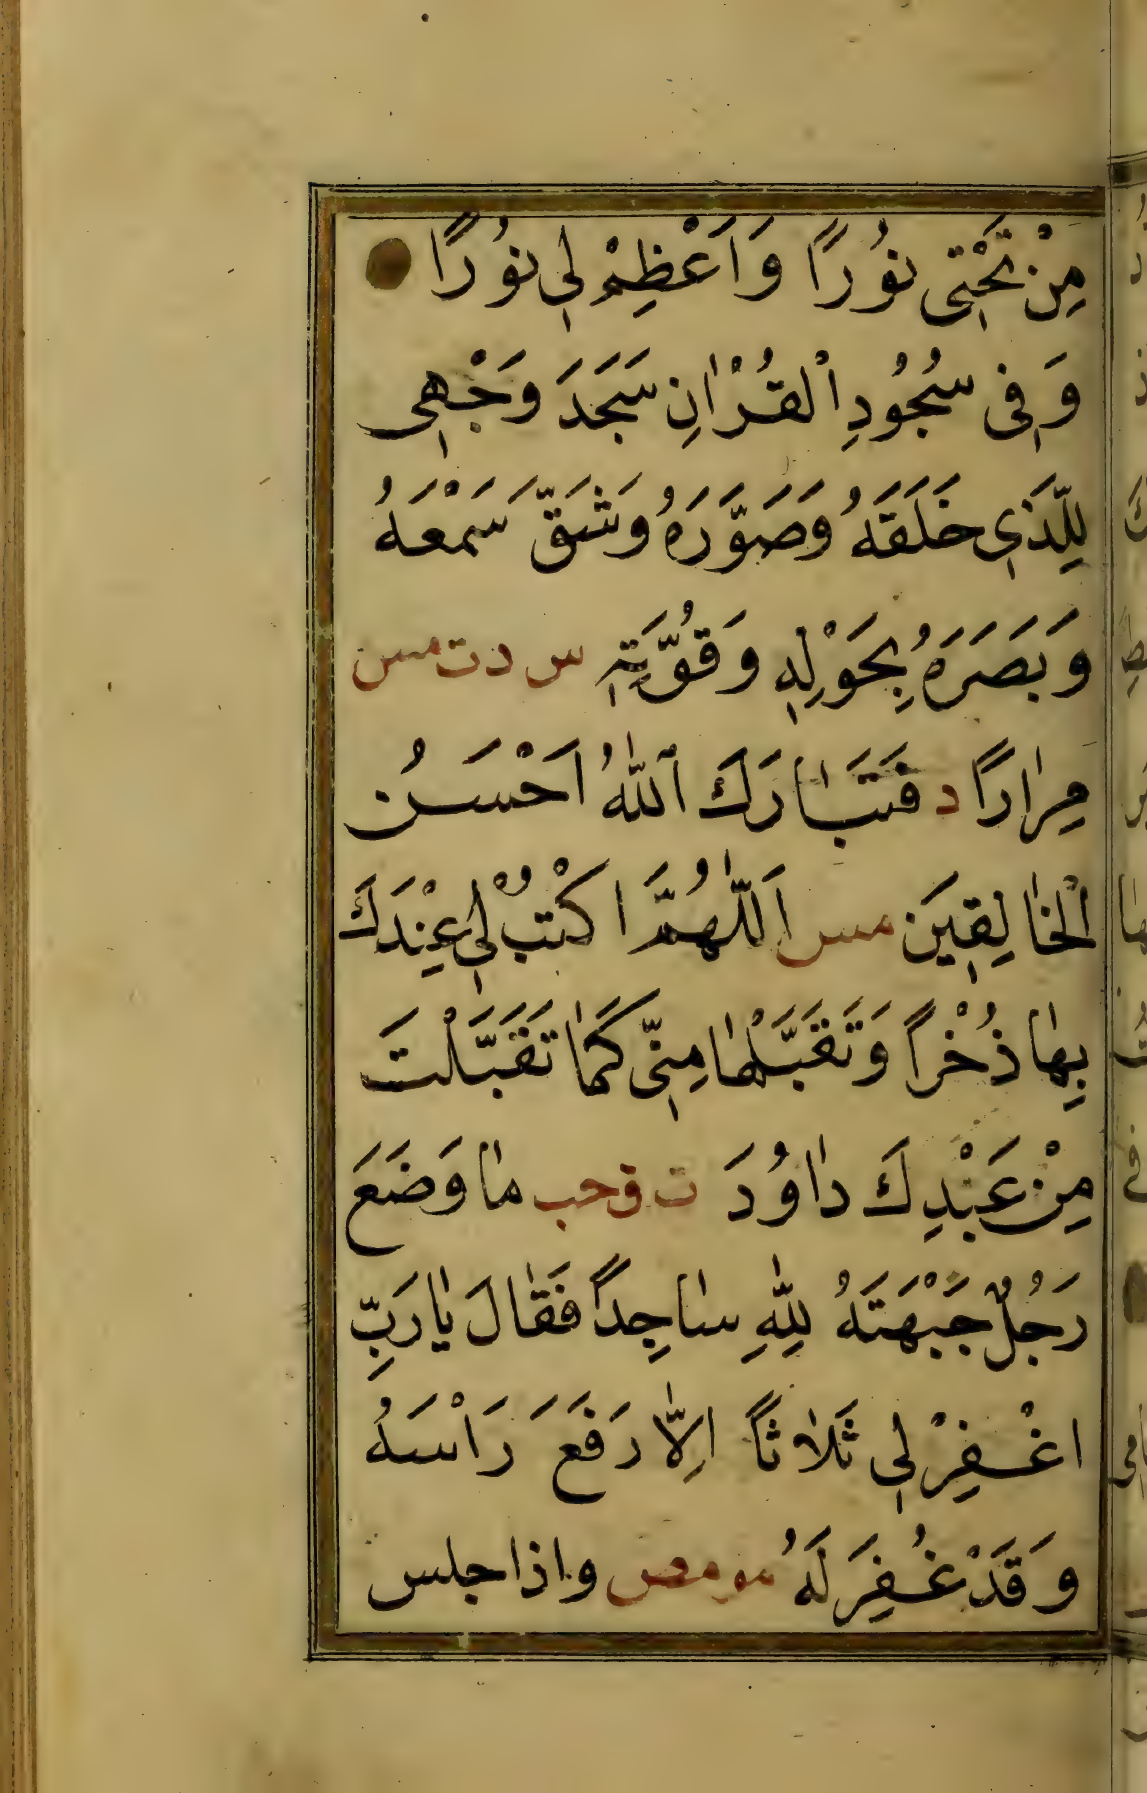 مِنْ تَحْتِى نُورًا وَاَعْظِمْ لِى نُورًا
وَفِى سُجُودِ الْقُرْاٰنِ سَجَدَ وَجْهِى
لِلَّذِى خَلَقَهُ وَصَوَّرَهُ وَشَقَّ سَمْعَهُ
وَبَصَرَهُ بِحَوْلِهِ وَقُوَّتِهِ س د ت مس
مِرٰارًا د فَتَبٰارَكَ اللّٰهُ اَحْسَنُ
الْخٰالِقِينَ مس اَللّٰهُمَّ اكْتُبْ لِى عِنْدَكَ
بِهٰا ذُخْرًا وَتَقَبَّلْهٰا مِنِّى كَمٰا تَقَبَّلْتَ
مِنْ عَبْدِكَ دٰاوُدَ ت ق حب مٰا وَضَعَ
رَجُلٌ جَبْهَتَهُ لِلّٰهِ سٰاجِدًا فَقٰالَ يٰارَبِّ
اغْفِرْ لِى ثَلٰاثًا اِلّٰا رَفَعَ رَاْسَهُ
وَقَدْ غُفِرَ لَهُ مو مص واذا جلس